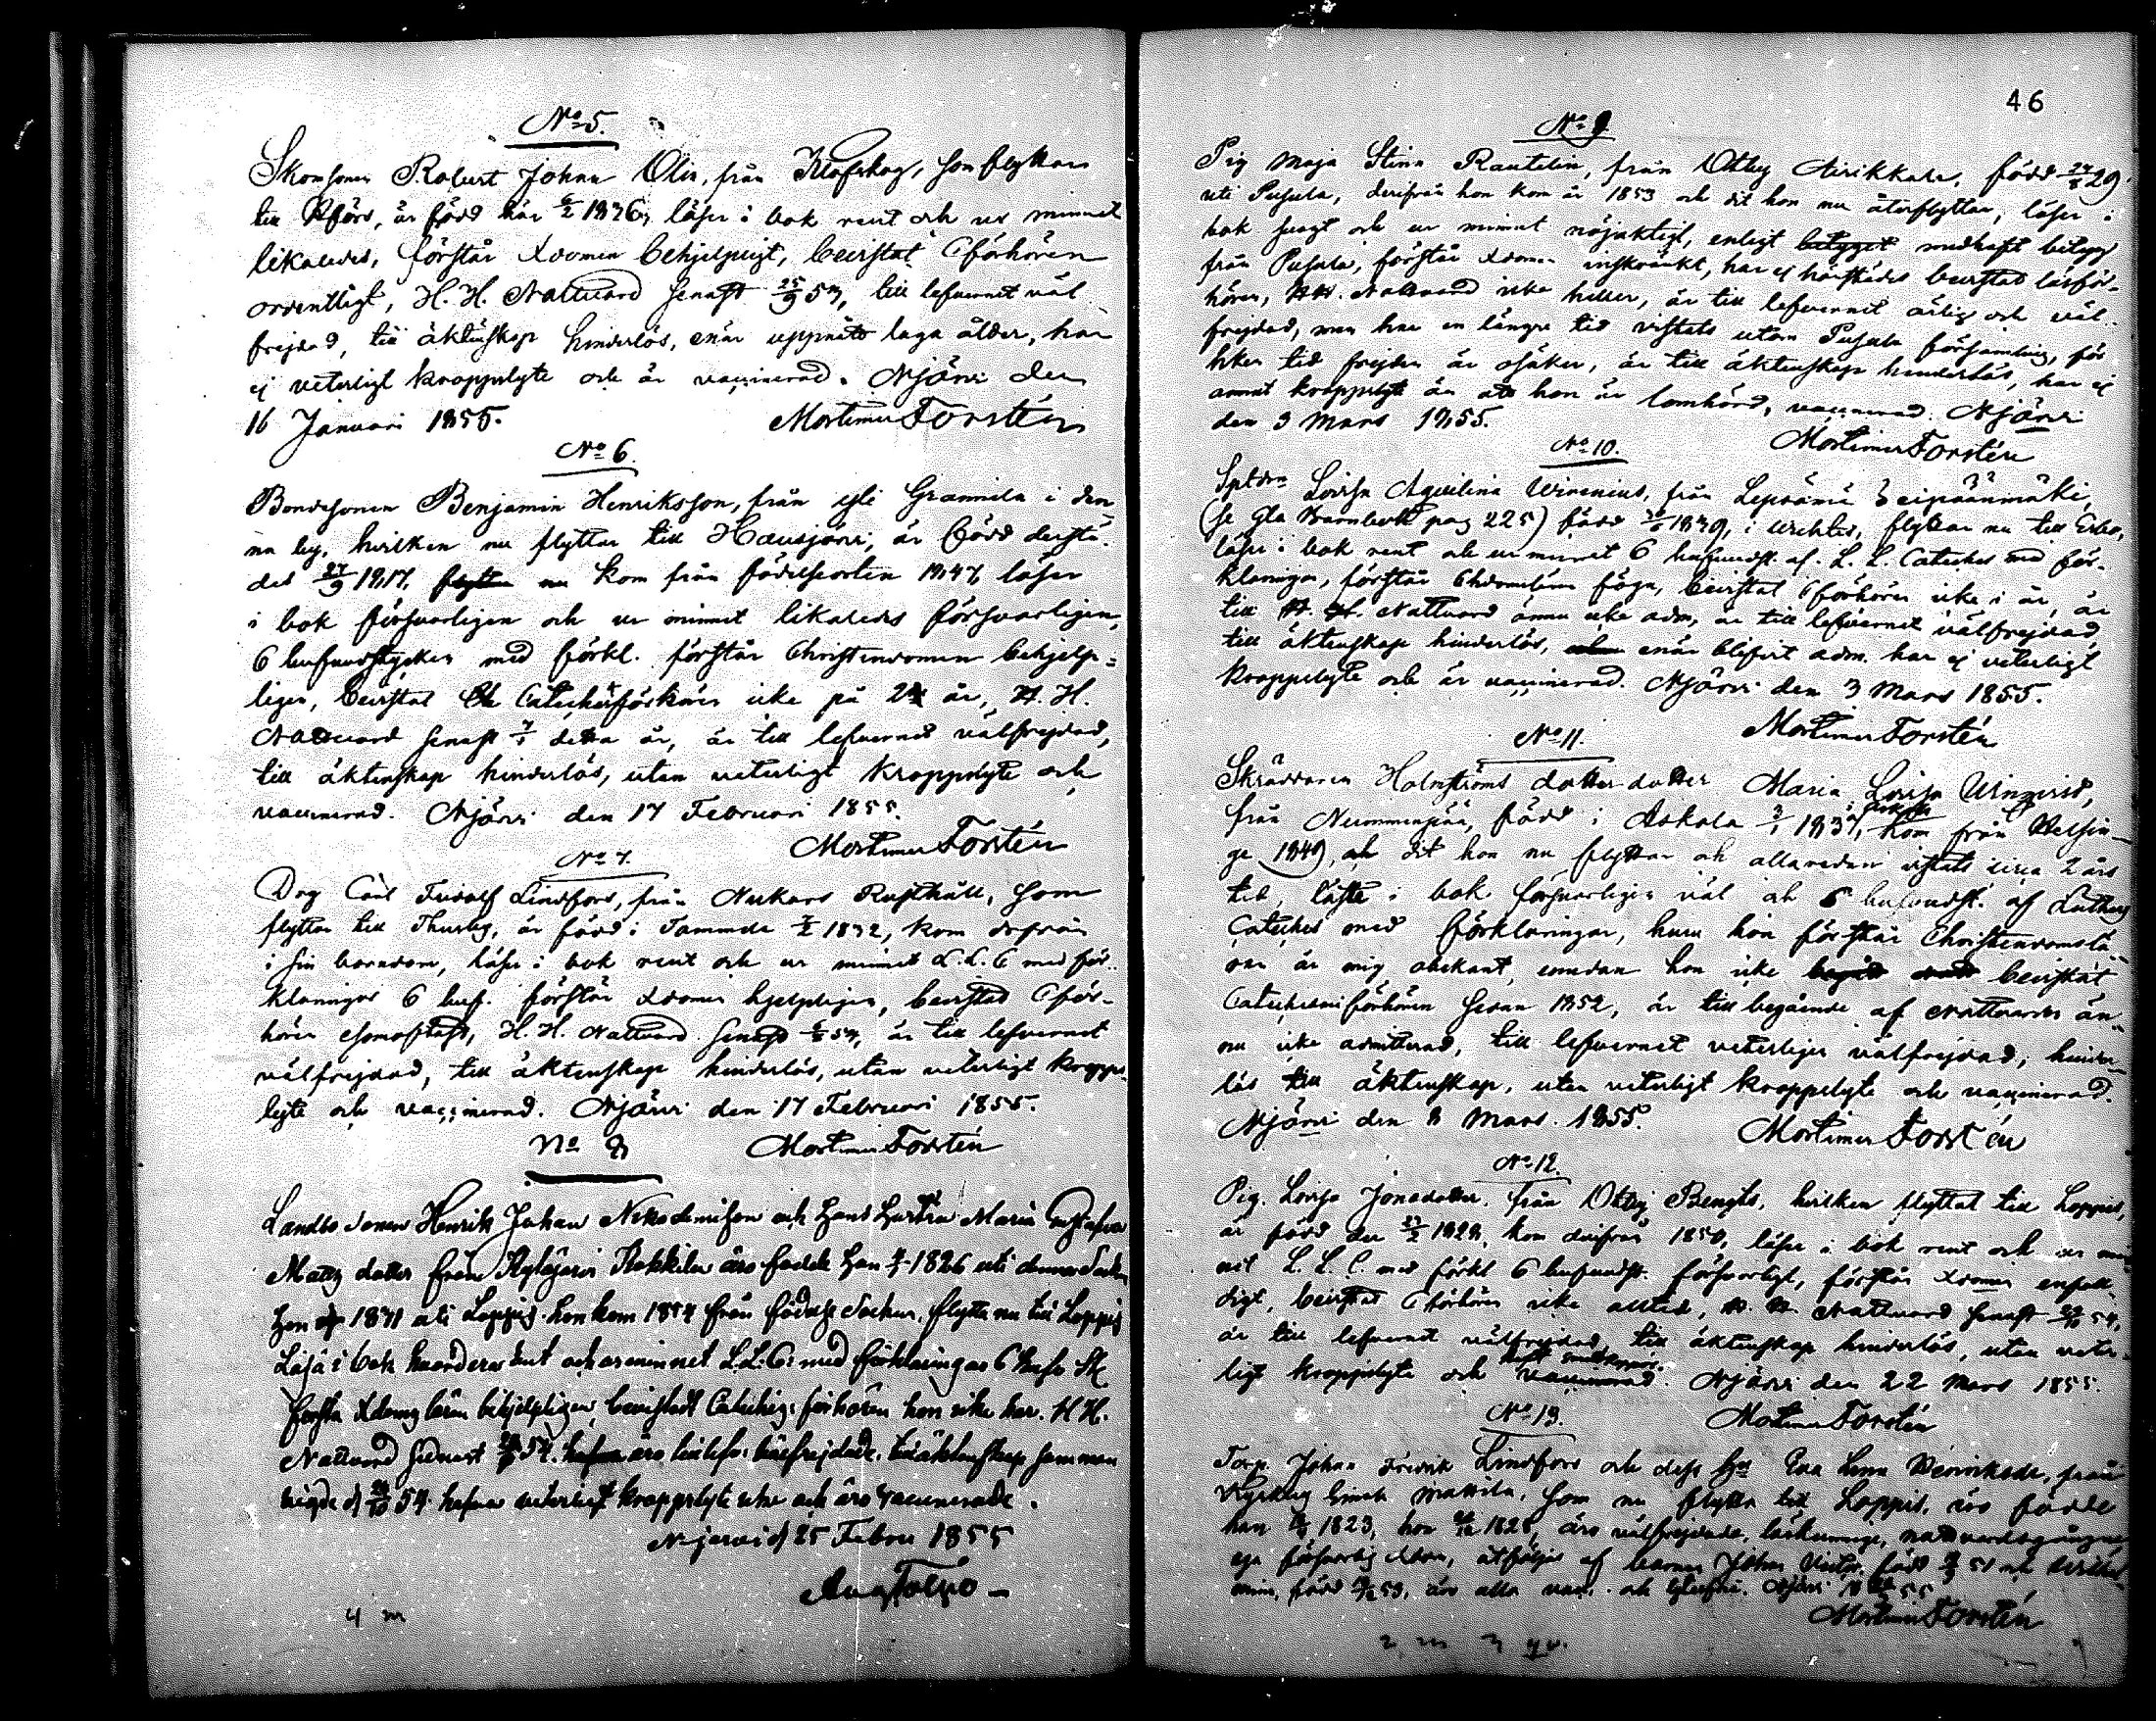 No 5.
Skomsonen Robert Johan Olin, från Klöfskog, som flyttar
till Hfors, är född här 6/2 1836, läser i bok rent och ur minnet
likaledes, förstår Xdomen behjelpligt, bevistat Cförhören
ordentligt, H. H. Nattvard senast 25/9 54, till lefvernet väl
frejdad, till äktenskap hinderlös, enär uppnått laga ålder, har
ej veterligt kroppslyte och är vaccinerad. Njärvi den
16 Januari 1855. Mortimer Forstén
No 6.
Bondesonen Benjamin Henriksson, från Grannila i den
na by, hvilken nu flyttar till Hausjärvi, är född derstä-
des 27/9 1817, flyttar nu kom från födelseorten 1847, läser
i bok försvarligen och ur minnet likaledes försvarligen,
6 hufvudstycken med förkl. förstår Christendomen behjelp=
ligen, bevistat Catechesförhören icke på 2 år, H. H.
Nattvard senast 7/1 detta år, är till lefvernet välfrejdad,
till äktenskap hinderlös, utan veterligt kroppslyte och
vaccinerad. Njärvi den 17 Februari 1855.
Mortimer Forstén
No 7.
Drg Carl Fridolf Lindfors, från Nukars Rusthåll, som
flyttar till Thusby, är född i Tammela 1832, kom derifrån
i sin barndom, läser i bok rent och ur minnet L.L.C med för-
klaringar 6 huf. förstår Xdomen hjelpligen, bevistat Cför-
hören H. H. Nattvard senast 54, är till lefvernet
välfrejdad, till äktenskap hinderlös, utan veterligt kropps-
lyte och vaccinerad. Njärvi den 17 Februari 1855.
No 8 Mortimer Forstén
Landbo sonen Henrik Johan Nikodemison och Hans Hustru Maria Gustafva
Matts dotter från Kytäjärvi äro födde Han 1826 uti denna Socken
Hon 1831 uti Loppis. hon kom 1854 från födelse Socknen. flytta nu till Loppis
Läsa i bok ut och ur minnet L.L:C: med förklaringar 6 hufv St
första Xdoms läran behjelpligen, bevistadt Catechis: förhören hon icke här. H H.
Nattvard sednast 54. äro till lefv: välfrejdade. till äktenskap samman
vigde d 26/10 54. hafva veterligt kroppslyte icke och äro vaccinerade.
N-järvi d 25 Febru 1855
4 m
46
No 9.
Pig Maja Stina Rautelin, från Otby född 24/8 29
uti Pusula, derifrån hon kom år 1853 och dit hon nu återflyttar, läser i
bok svagt och ur minnet nöjaktigt, enligt betyget medhaft betyg
från Pusula, förstår Xdomen inskränkt, har ej härstädes bevistat läsför-
hören, HH. Nattvard icke heller, är till lefvernet ärlig och väl-
frejdad, men har en längre tid vistats utom Pusula församling, för
hken tid frejden är osäker, är till äktenskap hinderlös, har ej
annat kroppslyte än att hon är lomhörd, vaccinerad. Njärvi
den 3 Mars 1855.
Mortimer Forstén
No 10.
Spldrn Lovisa Aqvilina Wirenius, från Lepsämä Seipäänmäki,
(se gla Barnbok pag 225) född 1839, i Wichtis, flyttar nu till Esbo,
läser i bok rent och ur minnet 6 hufvudst. af L. L. Cateches med för-
klaringar, förstår Chdomsläran föga, bevistat Cförhören icke i år, är
till H. H. Nattvard ännu icke adm, är till lefvernet välfrejdad
till äktenskap hinderlös, enär blifvit adm. har ej veterligt
kroppslyte och är vaccinerad. Njärvi den 3 Mars 1855.
Mortimer Forstén
No 11.
Skräddaren Holmströms dotter dotter Maria Lovisa
från Nummenpää, född i Askola 3/1 1837, kom från Helsin-
ge 1849, och dit hon nu flyttar och allaredan vistats circa 2 års
tid, läste i bok försvarligen väl och 6 hufvudst. af Luthers
Cateches med förklaringar, huru hon förstår Christendomslä-
ran är mig obekant, emedan hon icke bevistat
Catechesmiförhören sedan 1852, är till begående af Nattvarden än-
nu icke admitterad, till lefvernet veterligen välfrejdad, hinder-
lös till äktenskap, utan veterligt kroppslyte och vaccinerad.
Njärvi den 8 Mars. 1855.
Mortimer Forstén
No 12.
Pig. Lovisa Jonasdotter. från Otby Bengts, hvilken flyttat till Loppis,
är född den 1828, kom derifrån 1850, läser i bok rent och ur min
net L. L. C. med förkl 6 hufvudst. försvarligt, förstår Xdomen enfal-
digt, bevistat Cförhören icke alltid, H. H. Nattvard senast 54,
är till lefvernet välfrejdad, till äktenskap hinderlös, utan veter-
ligt kroppslyte och haft smittkoppor. vaccinerad. Njärvi den 22 Mars 1855.
No 13. Mortimer Forstén
Torp. Johan Fredrik Lindfors och dess hu Eva Lena Henriksdr, från
som nu flytta till Loppis, äro födde
han 1823, hon 1828, äro välfrejdade, läskunnige, nattvardsgångne,
ega försvarlig Xdom, åtföljas af barnen Johan född 51 och
född 53, äro alla vacc. och Njärvi 55
Mortimer Forstén
2 m 3 qv.